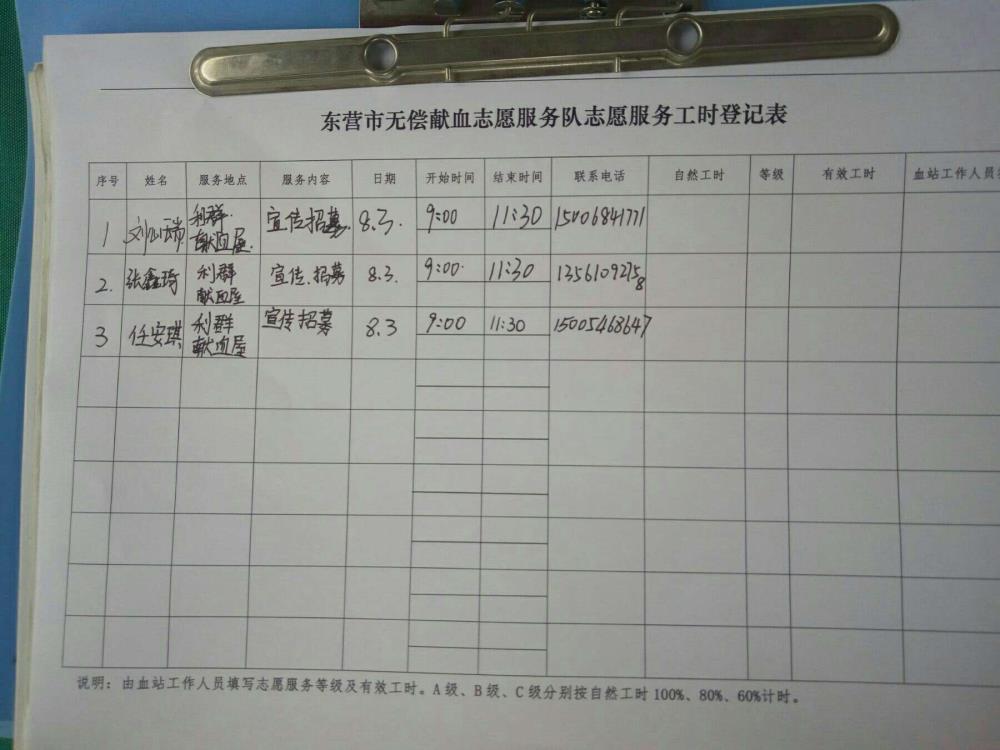 东营市无偿献血志愿服务队志愿服务工时登记表
序号 姓名 服务地点 服务内容 日期 开始时间 结束时间 联系电话 自然工时 等级 有效工时 血站工作人员
1 利群献血屋. 宣传招募. 8.3. 9:00 11:30 15006841771
2. 张鑫琦 利群献血屋 宣传.招募 8.3. 9:00. 11:30 13561092758
3 任安琪 利群献血屋 宣传招募 8.3 9:00 11:30 15005468647
说明：由血站工作人员填写志愿服务等级及有效工时。A级、B级、C级分别按自然工时100%、80%、60%计时。